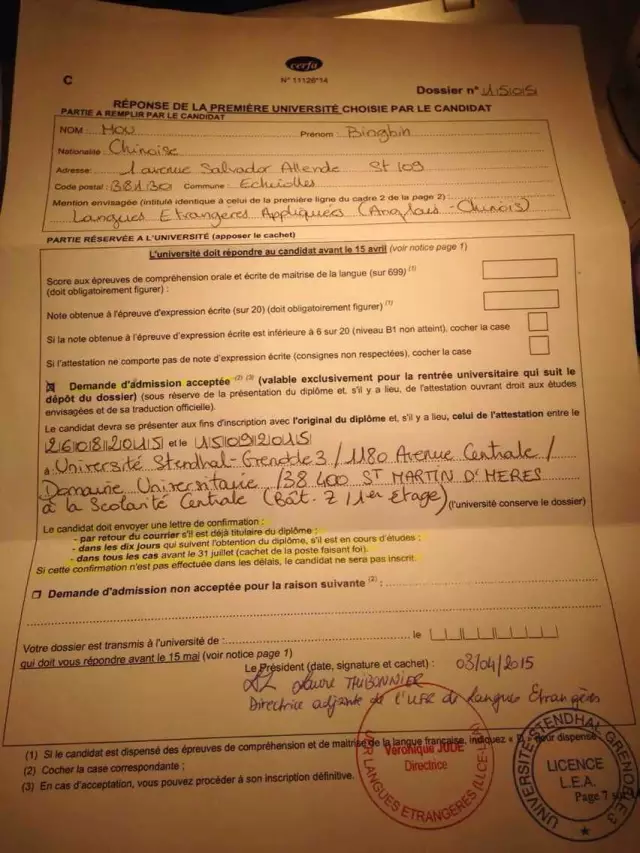 cerfa
N° 11126*14
C
Dossier n° 1505
RÉPONSE DE LA PREMIÈRE UNIVERSITÉ CHOISIE PAR LE CANDIDAT
PARTIE A REMPLIR PAR LE CANDIDAT
NOM : MOU Prénom : Bingbin
Nationalité : Chinoise
Adresse: 1 avenue Salvador Allende St 109
Code postal : 38130 Commune : Echirolles
Mention envisagée (intitulé identique à celui de la première ligne du cadre 2 de la page 2) :
Langues Etrangères Appliquées (Anglais - Chinois)
PARTIE RÉSERVÉE A L'UNIVERSITÉ (apposer le cachet)
L'université doit répondre au candidat avant le 15 avril (voir notice page 1)
Score aux épreuves de compréhension orale et écrite de maitrise de la langue (sur 699) (1)
(doit obligatoirement figurer) :
Note obtenue à l'épreuve d'expression écrite (sur 20) (doit obligatoirement figurer) (1)
Si la note obtenue à l'épreuve d'expression écrite est inférieure à 6 sur 20 (niveau B1 non atteint), cocher la case
Si l'attestation ne comporte pas de note d'expression écrite (consignes non respectées), cocher la case
Demande d'admission acceptée (2) (3) (valable exclusivement pour la rentrée universitaire qui suit le
dépôt du dossier) (sous réserve de la présentation du diplôme et, s'il y a lieu, de l'attestation ouvrant droit aux études
envisagées et de sa traduction officielle).
Le candidat devra se présenter aux fins d'inscription avec l'original du diplôme et, s'il y a lieu, celui de l'attestation entre le
26082015 et le 15092015
à Université Stendhal-Grenoble 3 / 1180 Avenue Centrale /
Domaine Universitaire / 38 400 ST MARTIN D'HERES
à la Scolarité Centrale (Bât. Z / 1er Etage) (l'université conserve le dossier)
Le candidat doit envoyer une lettre de confirmation :
- par retour du courrier s'il est déjà titulaire du diplôme ;
- dans les dix jours qui suivent l'obtention du diplôme, s'il est en cours d'études ;
- dans tous les cas avant le 31 juillet (cachet de la poste faisant foi).
Si cette confirmation n'est pas effectuée dans les délais, le candidat ne sera pas inscrit.
Demande d'admission non acceptée pour la raison suivante (2) :
Votre dossier est transmis à l'université de : le
qui doit vous répondre avant le 15 mai (voir notice page 1)
Le Président (date, signature et cachet) : 03/04/2015
Laure THIBONNIER
Directrice adjointe de l'UFR de Langues Étrangères
(1) Si le candidat est dispensé des épreuves de compréhension et de maitrise de la langue française, indiquez « D » pour dispensé
(2) Cocher la case correspondante ;
(3) En cas d'acceptation, vous pouvez procéder à son inscription définitive.
Véronique JUDE
Directrice
UFR LANGUES ETRANGERES
UNIVERSITE STENDHAL GRENOBLE 3
LICENCE
L.E.A.
Page 7